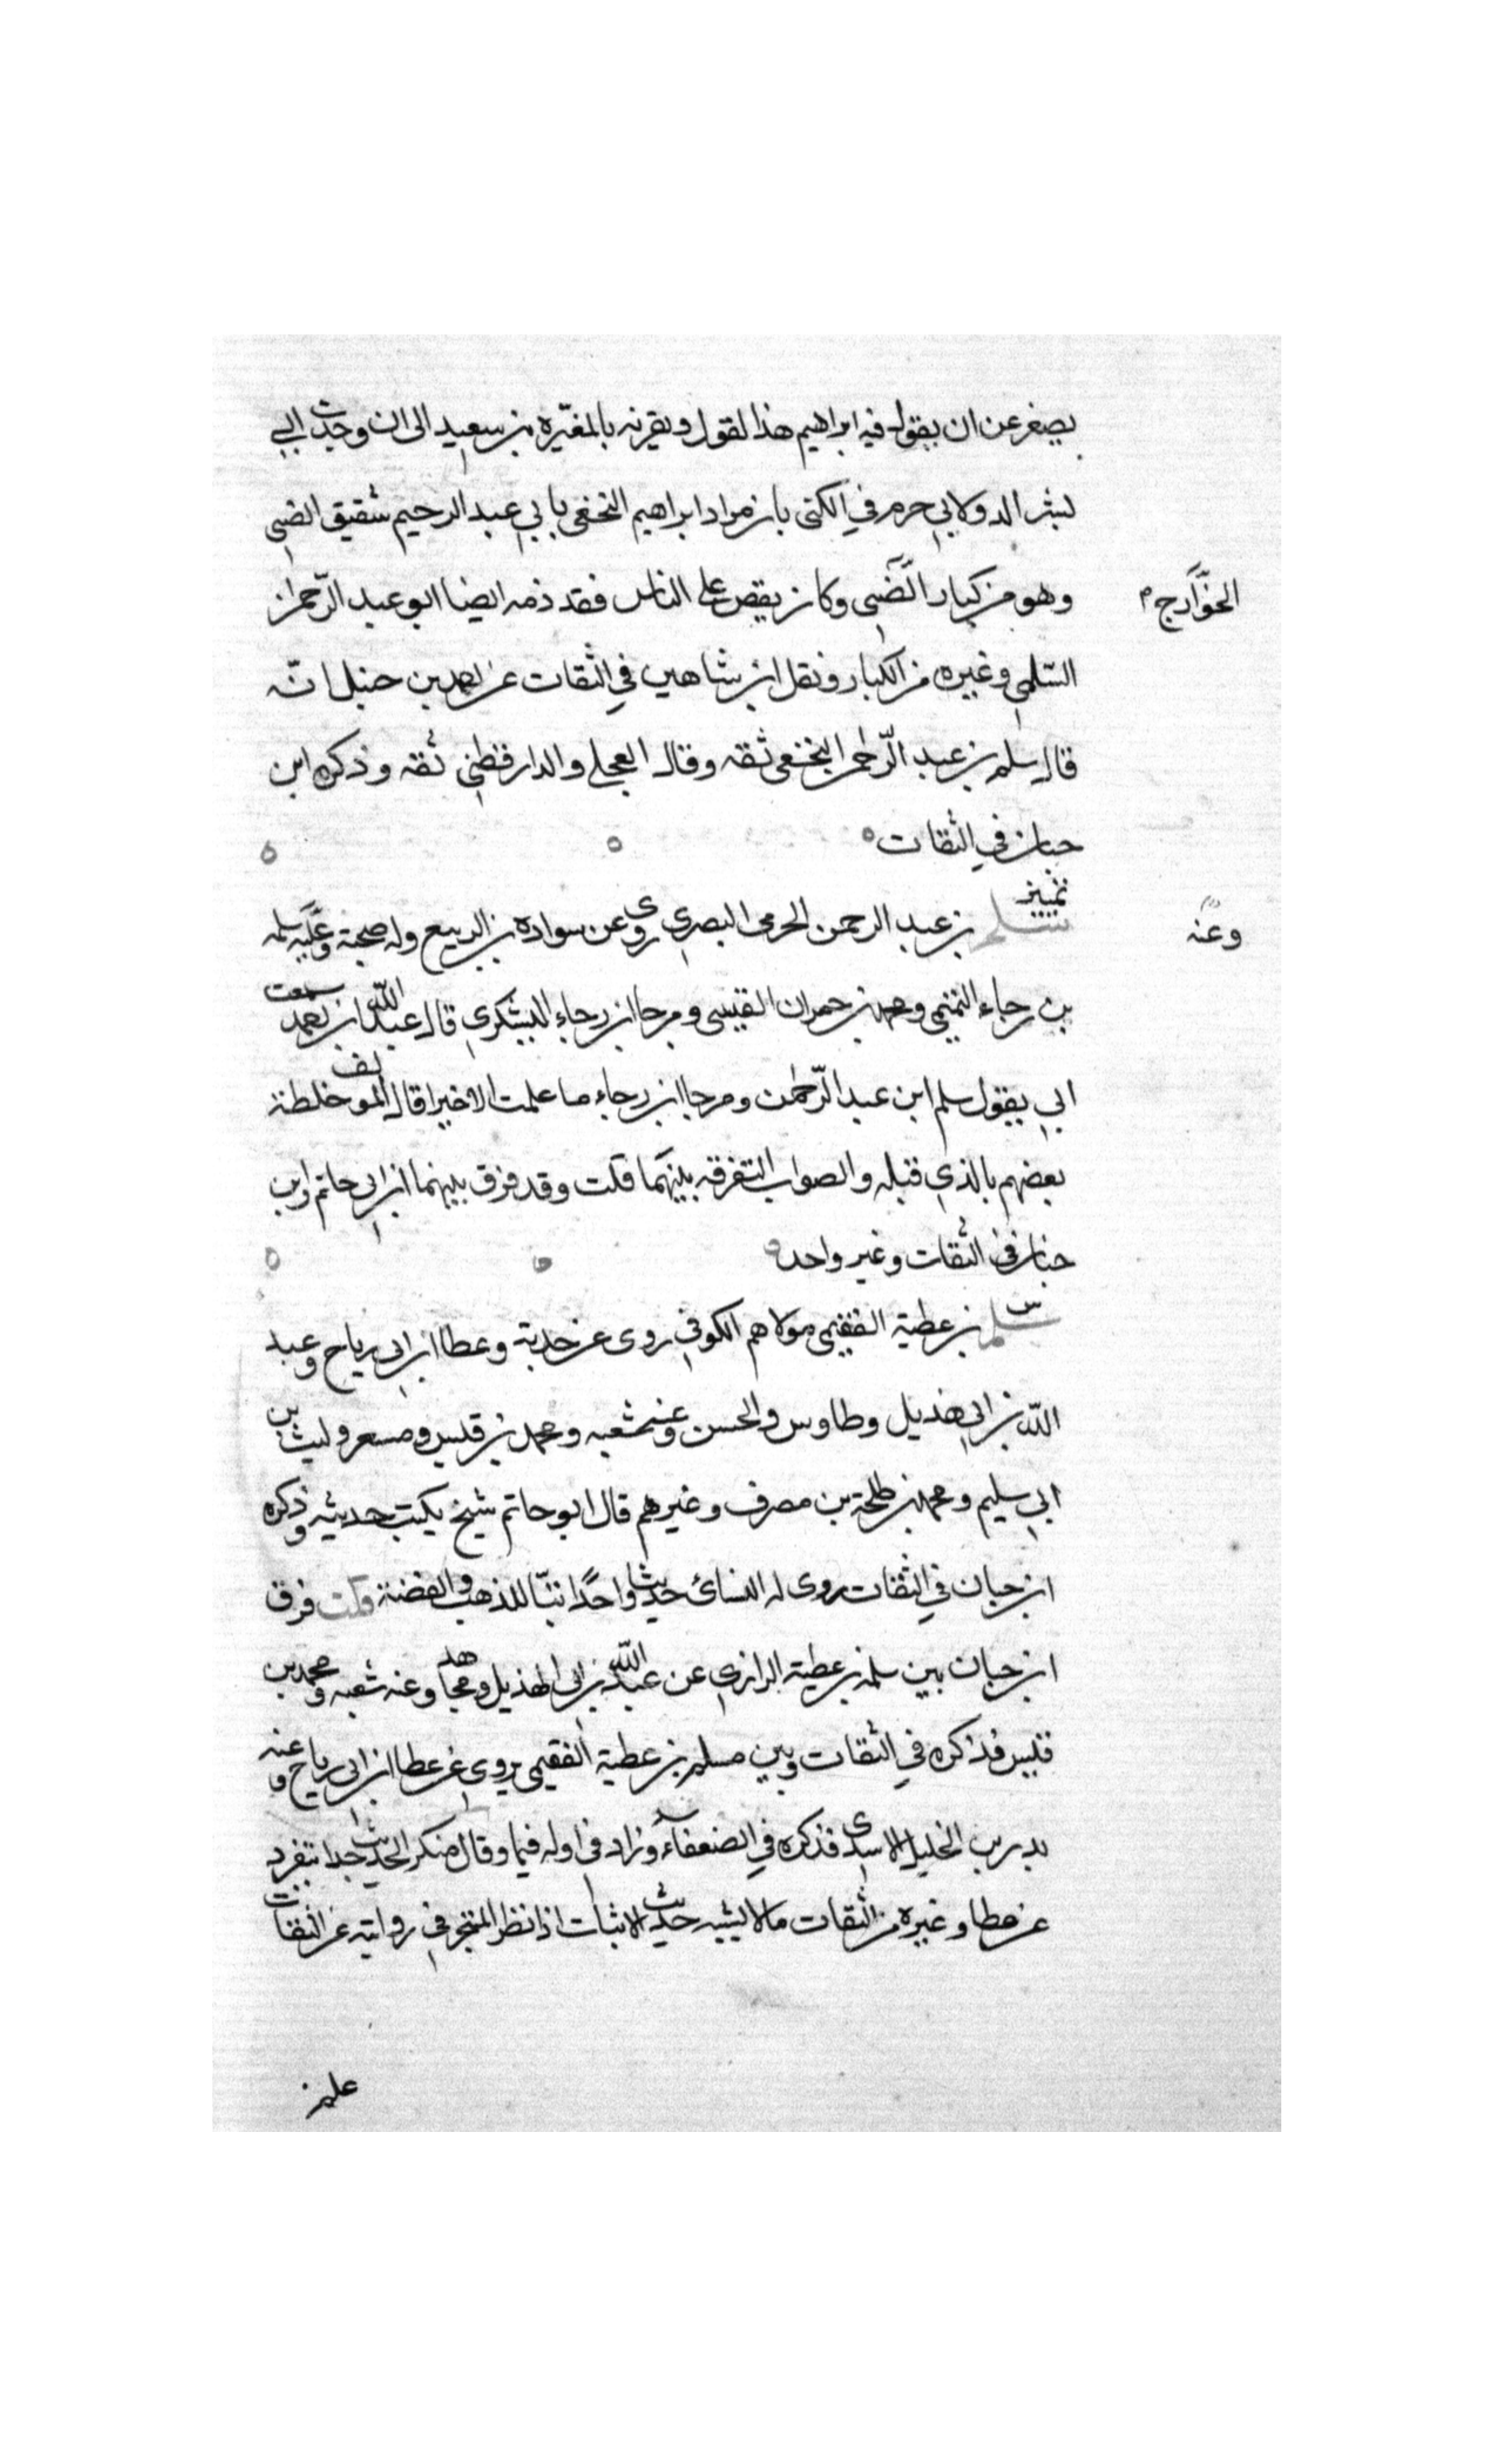 يصغر عن ان يقول فيه ابراهيم هذا لقول ويقرنه بالمغيره بن سعيد الى ان وجدت ابي
بشر الدولابي جرم في الكنى بان مراد ابراهيم النخعي بابي عبد الرحيم شقيق الضبي
وهو من كبار الضبى وكان يقص على الناس فقد ذمه ايضا ابو عبد الرحمان
الخوارج
السلمي وغيره من الكبار ونقل ابن شاهين في الثقات عن احمد بن حنبل انه
قال سلم بن عبد الرحمن النخعي ثقه وقال العجلي والدارقطني ثقه وذكره ابن
حبان في الثقات
تمييز
سلم بن عبد الرحمن الجرمي البصري روى عن سواده بن الربيع وله صحبة سلمه
وعنه
بن رجاء التميمي ومحمد بن حمران القيسي ومرجا ابن رجاء اليشكري قال عبد الله ابن احمد سمعت
ابي يقول سلم ابن عبد الرحمن ومرجا ابن رجاء ما علمت الا خيرا قال المولف خلطة
بعضهم بالذي قبله والصواب التفرقه بينهما قلت وقد فرق بينهما ابن ابي حاتم وابن
حبان في الثقات وغير واحد
س
سلم بن عطية الفقيمي مولاهم الكوفي روى عن وعطا ابن ابي رباح وعبد
الله بن ابي هذيل وطاوس والحسن وعنه شعبه ومحمد بن قيس ومسعر وليث بن
ابي سليم ومحمد بن طلحة بن مصرف وغيرهم قال ابو حاتم شيخ يكتب حديثه وذكره
ابن حبان في الثقات روى له النسائ حديثا واحدا للذهب والفضة قلت فرق
ابن حبان بين سلم بن عطية الرازي عن عبد الله بن ابي الهذيل ومجاهد وعنه شعبه ومحمد بن
قيس فذكره في الثقات وبين مسلم بن عطية الفقيمي يروي عن عطا ابن ابي رباح وعنه
بدر بن الخليل الاسدى فذكره في الضعفاء وزاد في اوله فيما وقال منكر الحديث جدا تنفرد
عن عطا وغيره من الثقات مالا يشبه حديث لاثبات اذا نظر المتبحر في روايته عن الثقات
علم